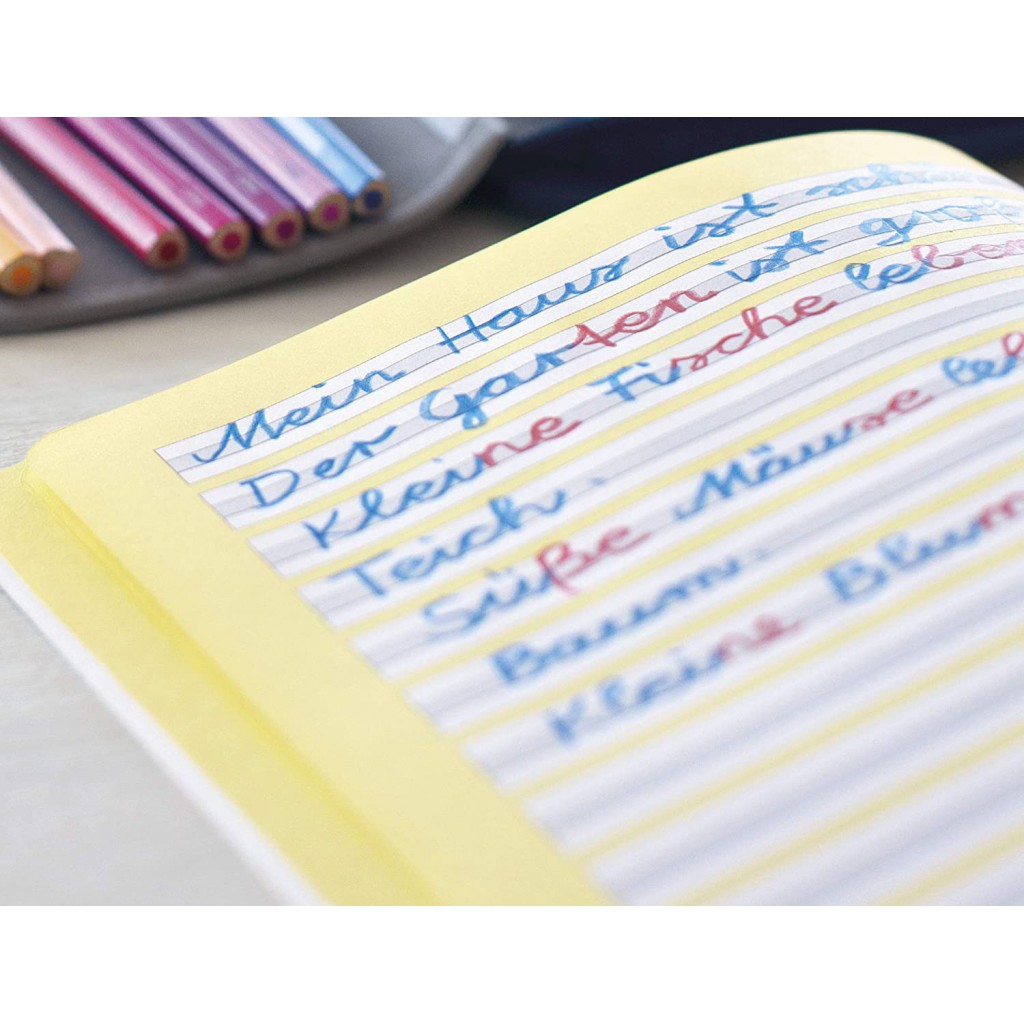 Mein Haus ist
Der Garten ist groß
Kleine Fische leben
Teich.
Süße Mäuse
Baum.
Kleine